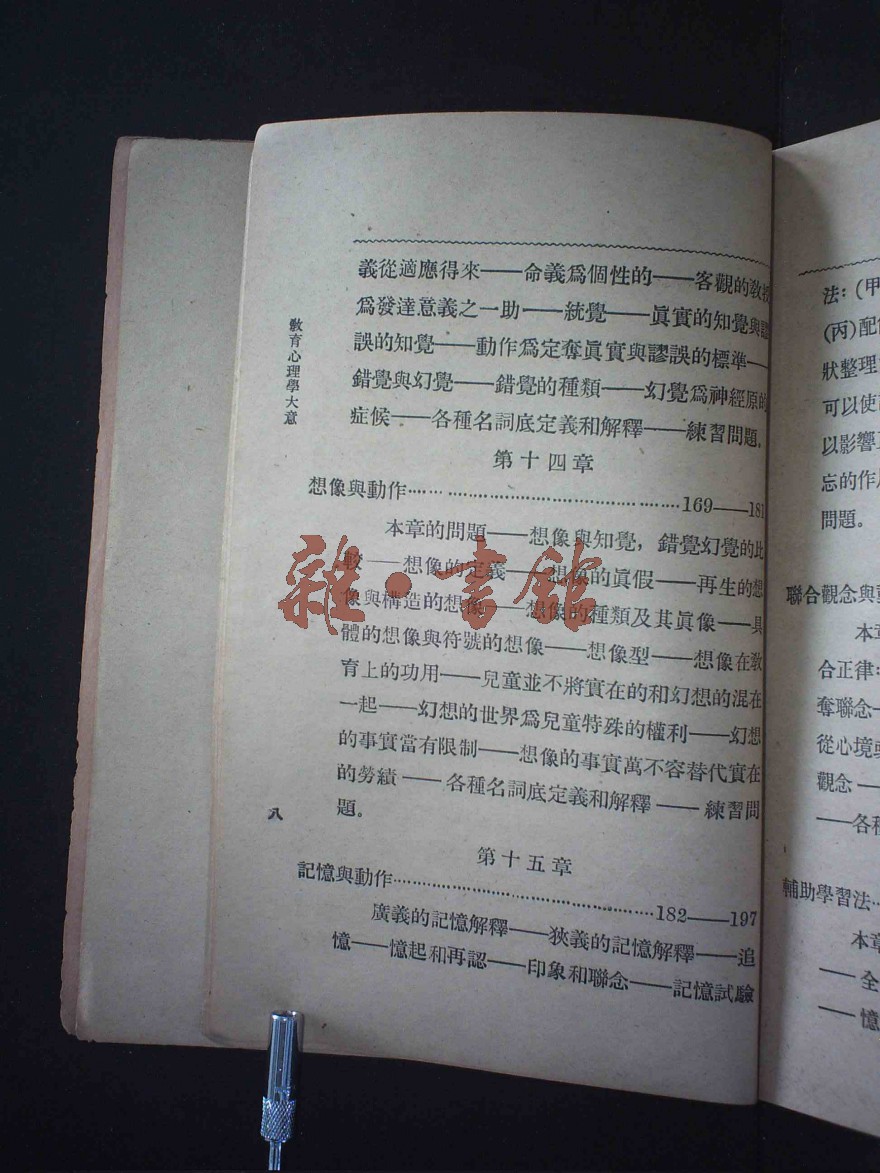 教育心理學大意
義從適應得來——命義爲個性的——客觀的教授
爲發達意義之一助——統覺——眞實的知覺與謬
誤的知覺——動作爲定奪眞實與謬誤的標準——
錯覺與幻覺——錯覺的種類——幻覺爲神經原的
症候——各種名詞底定義和解釋——練習問題。
第十四章
想像與動作……………………………………169——181
本章的問題——想像與知覺，錯覺幻覺的比
較——想像的定義——想像的眞假——再生的想
像與構造的想像——想像的種類及其眞像——具
體的想像與符號的想像——想像型——想像在教
育上的功用——兒童並不將實在的和幻想的混在
一起——幻想的世界爲兒童特殊的權利——幻想
的事實當有限制——想像的事實萬不容替代實在
的勞績——各種名詞底定義和解釋——練習問
題。
八
第十五章
記憶與動作……………………………………182——197
廣義的記憶解釋——狹義的記憶解釋——追
憶——憶起和再認——印象和聯念——記憶試驗
雜·書館
法：(甲
(丙)配
狀整理
可以使
以影響
忘的作
問題。
聯合觀念與
本章
合正律：
奪聯念—
從心境
觀念——
——各種
輔助學習法…
本章
——全
——憶